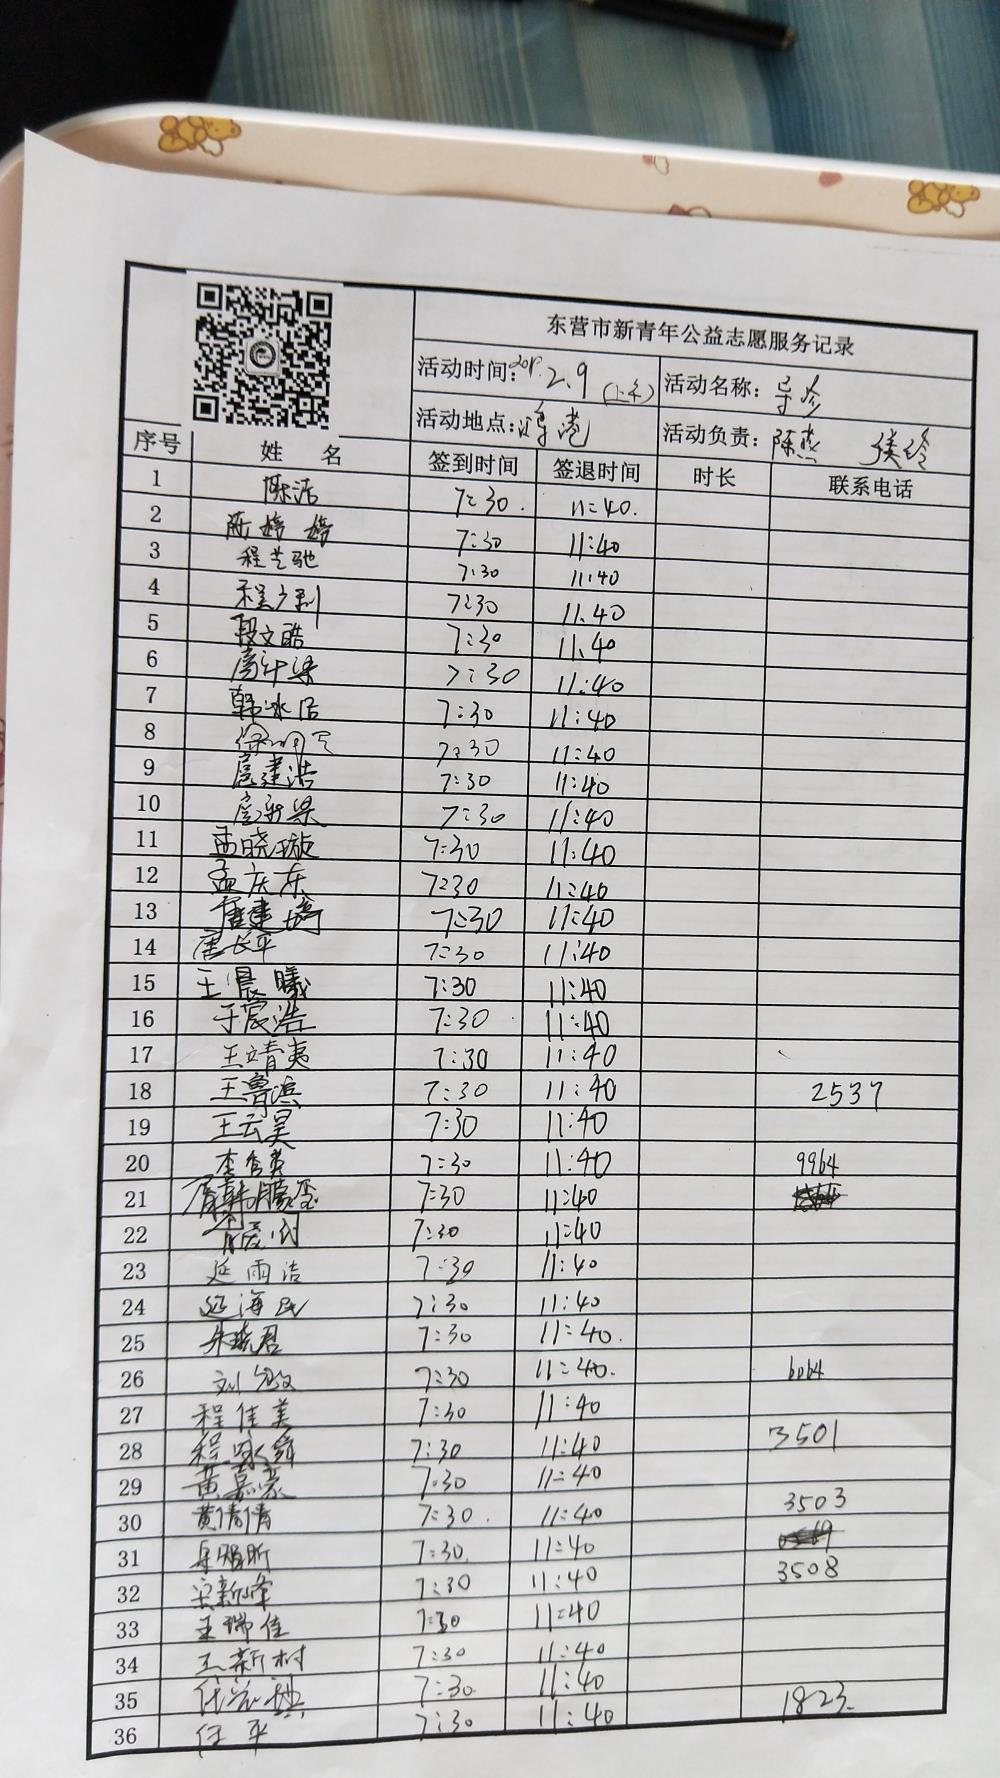 东营市新青年公益志愿服务记录
活动时间: 2.9 活动名称: 导诊
活动地点: 活动负责: 陈燕
序号 姓 名 签到时间 签退时间 时长 联系电话
1 陈洁 7:30. 11:40.
2 陈婷婷 7:30 11:40
3 程芝驰 7:30 11:40
4 7:30 11:40
5 段文皓 7:30 11:40
6 7:30 11:40
7 韩冰洁 7:30 11:40
8 7:30 11:40
9 扈建浩 7:30 11:40
10 扈新梁 7:30 11:40
11 孟晓璇 7:30 11:40
12 孟庆东 7:30 11:40
13 7:30 11:40
14 唐长平 7:30 11:40
15 王晨曦 7:30 11:40
16 于宸浩 7:30 11:40
17 王靖夷 7:30 11:40
18 王鲁滨 7:30 11:40 2537
19 王云昊 7:30 11:40
20 7:30 11:40 9964
21 7:30 11:40
22 7:30 11:40
23 延雨洁 7:30 11:40
24 延海民 7:30 11:40
25 朱晓君 7:30 11:40.
26 7:30 11:40. 6064
27 程佳美 7:30 11:40
28 7:30 11:40 3501
29 黄嘉豪 7:30 11:40
30 黄倩倩 7:30. 11:40 3503
31 7:30. 11:40
32 宋新峰 7:30 11:40 3508
33 王瑞佳 7:30 11:40
34 王新村 7:30 11:40
35 7:30. 11:40
36 任平 7:30 11:40 1823